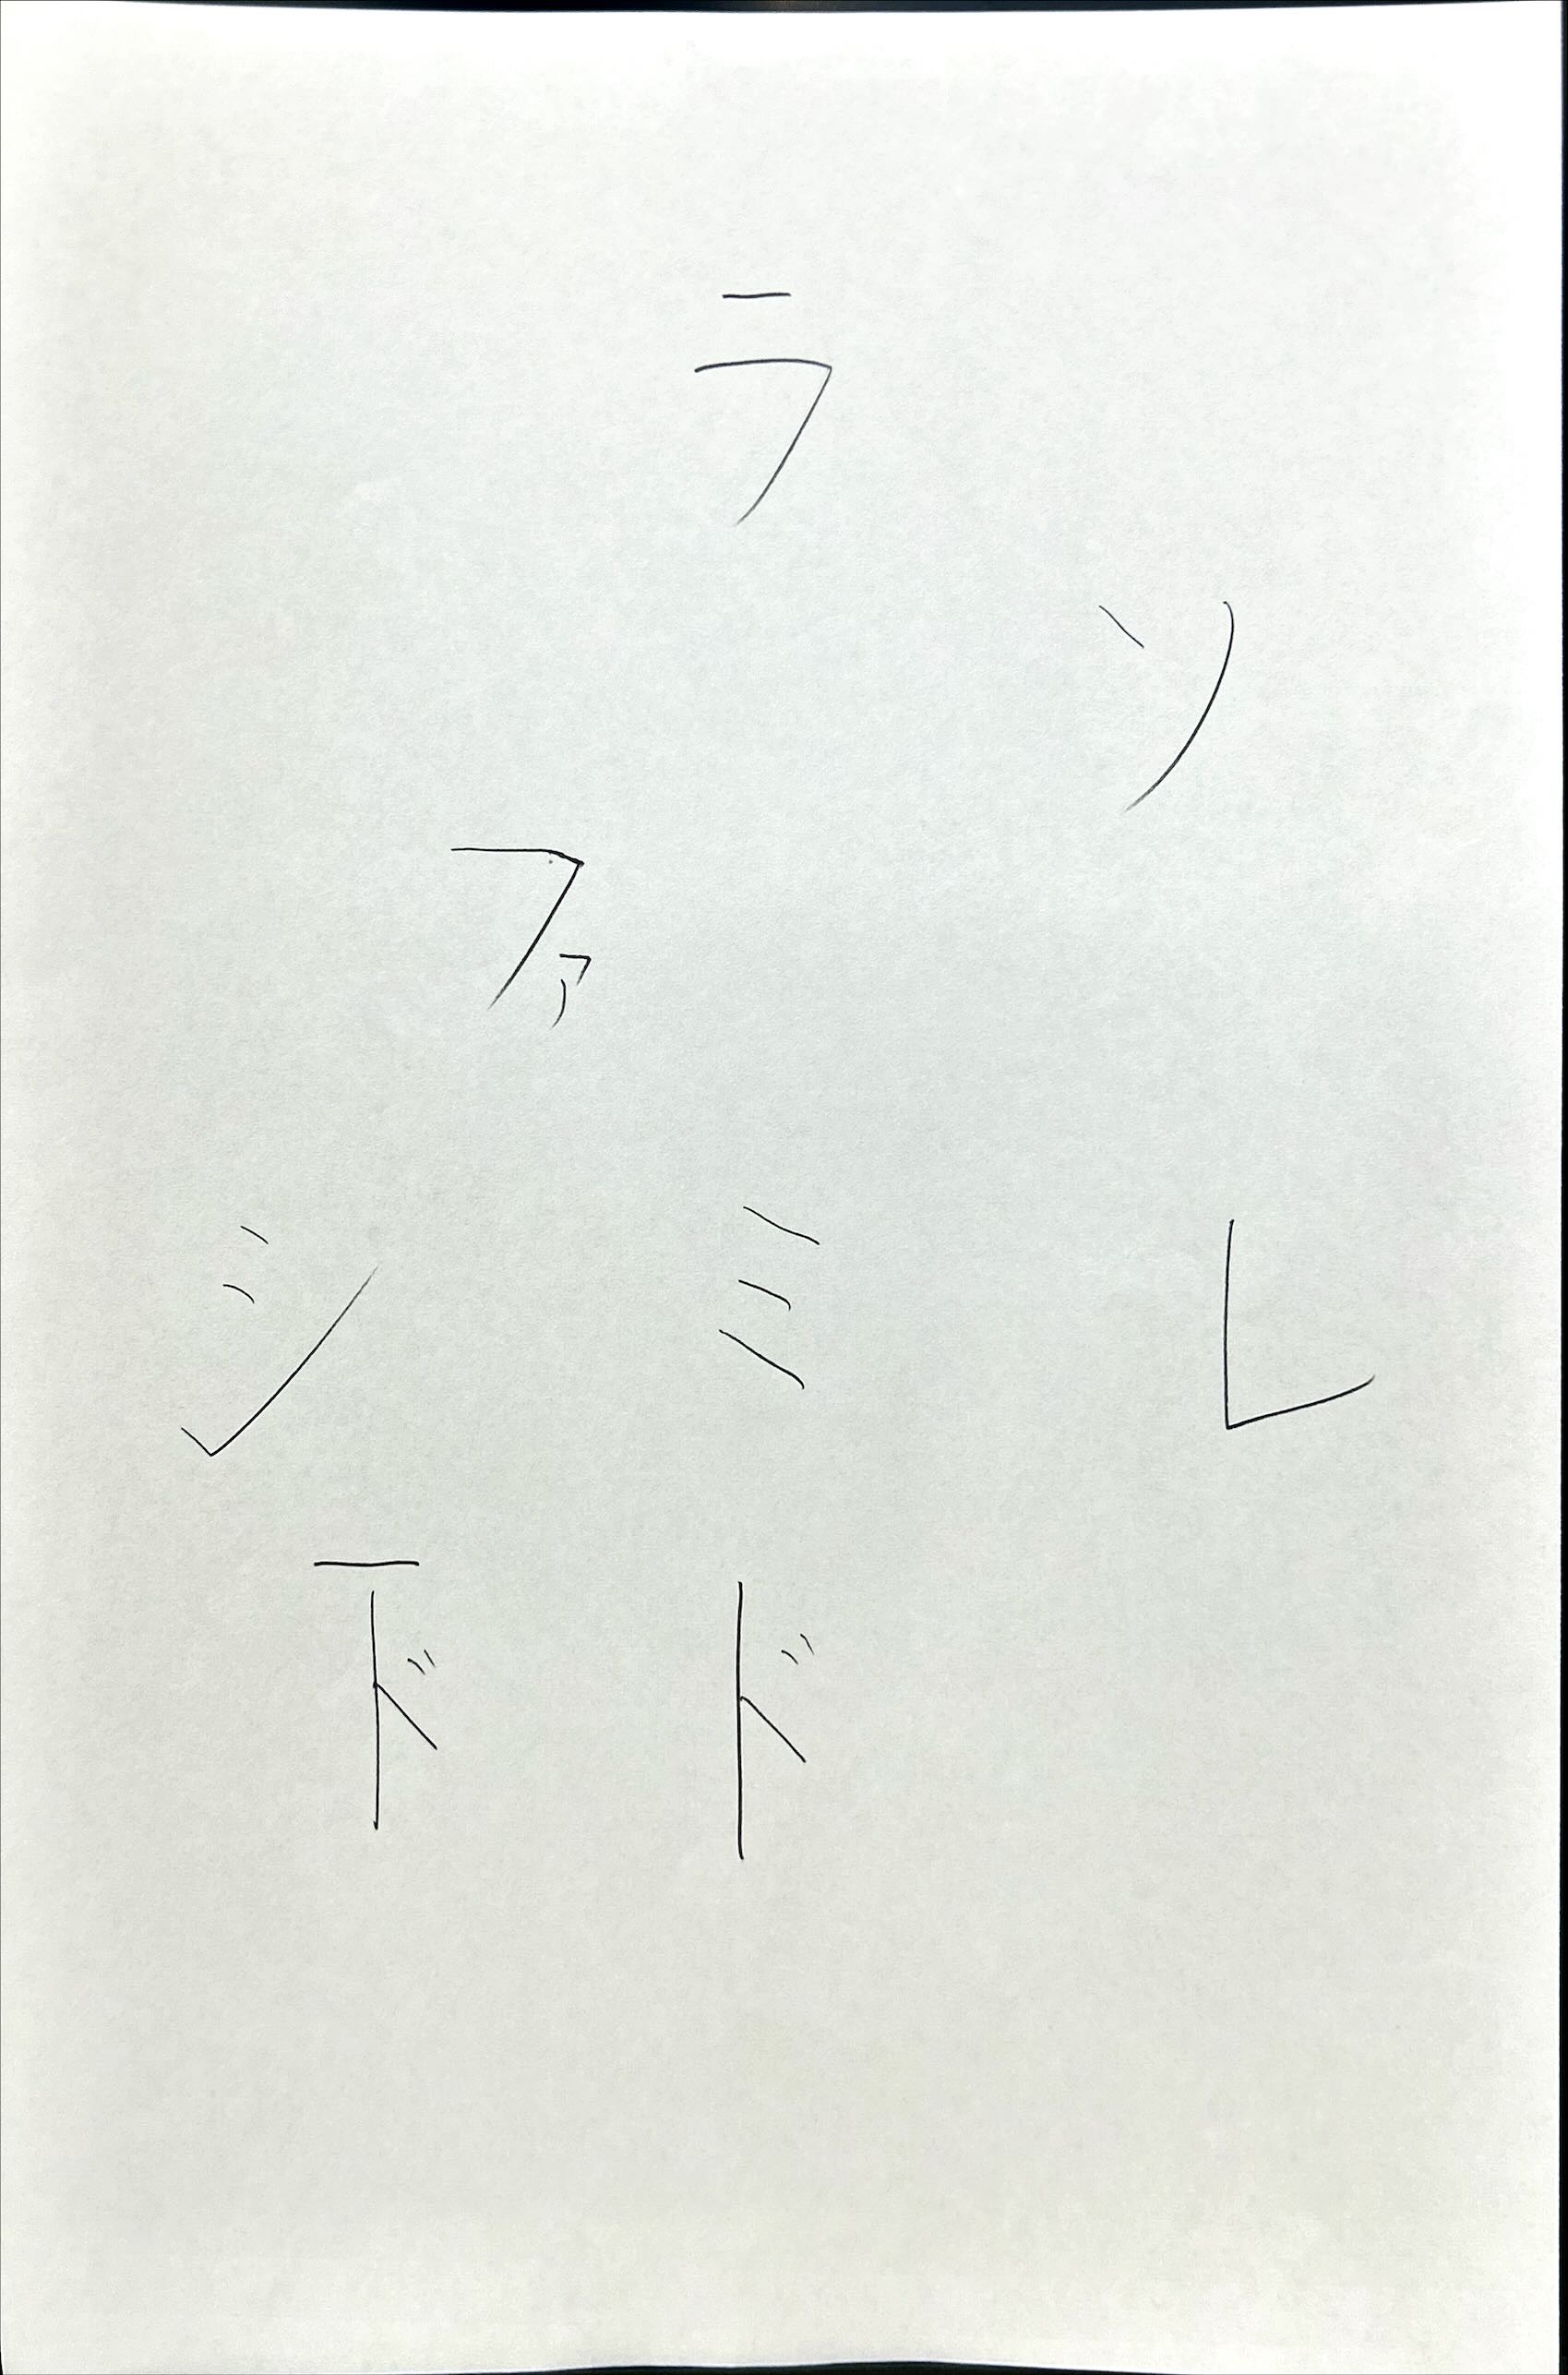 ラ
ソ
ファ
シ ミ レ
ド ド